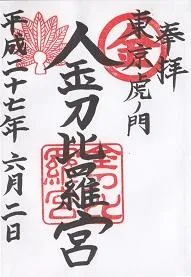 奉拝
東京虎ノ門
金
金刀比羅宮
平成二十七年 六月二日